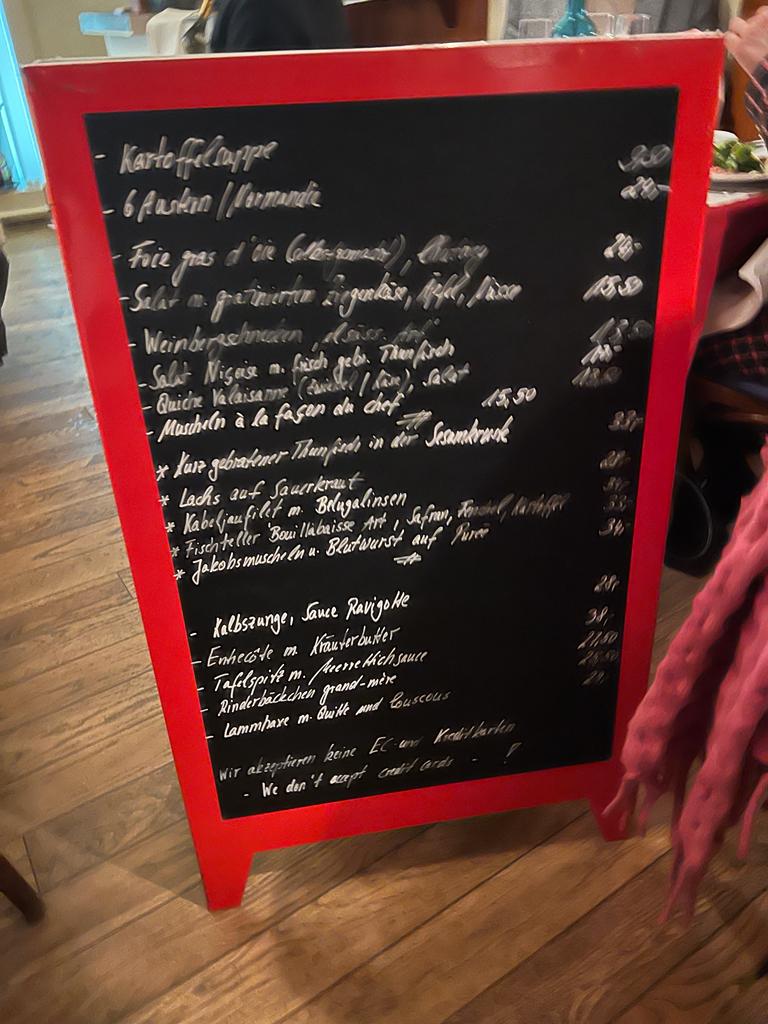 - Kartoffelsuppe
- 6 Austern / Normandie
- Foie gras d'oie (
- Salat m. gratiniertem Ziegenkäse, Äpfel, Nüsse 15,50
- Weinbergschnecken
- Salat Niçoise m. frisch gebr. Thunfisch
- Quiche Valaisanne (Zwiebel / Käse), Salat
- Muscheln à la façon du chef 15,50
* Kurz gebratener Thunfisch in der Sesamkruste 33,-
* Lachs auf Sauerkraut
* Kabeljaufilet m. Belugalinsen
* Fischteller Bouillabaisse Art, Safran, Fenchel, Kartoffel
* Jakobsmuscheln u. Blutwurst auf Püree 34,-
- Kalbszunge, Sauce Ravigotte 28,-
- Entrecôte m. Kräuterbutter 38,-
- Tafelspitz m. Meerrettichsauce
- Rinderbäckchen grand-mère
- Lammhaxe m. Quitte und Couscous
Wir akzeptieren keine EC- und Kreditkarten
- We don't accept credit cards - !